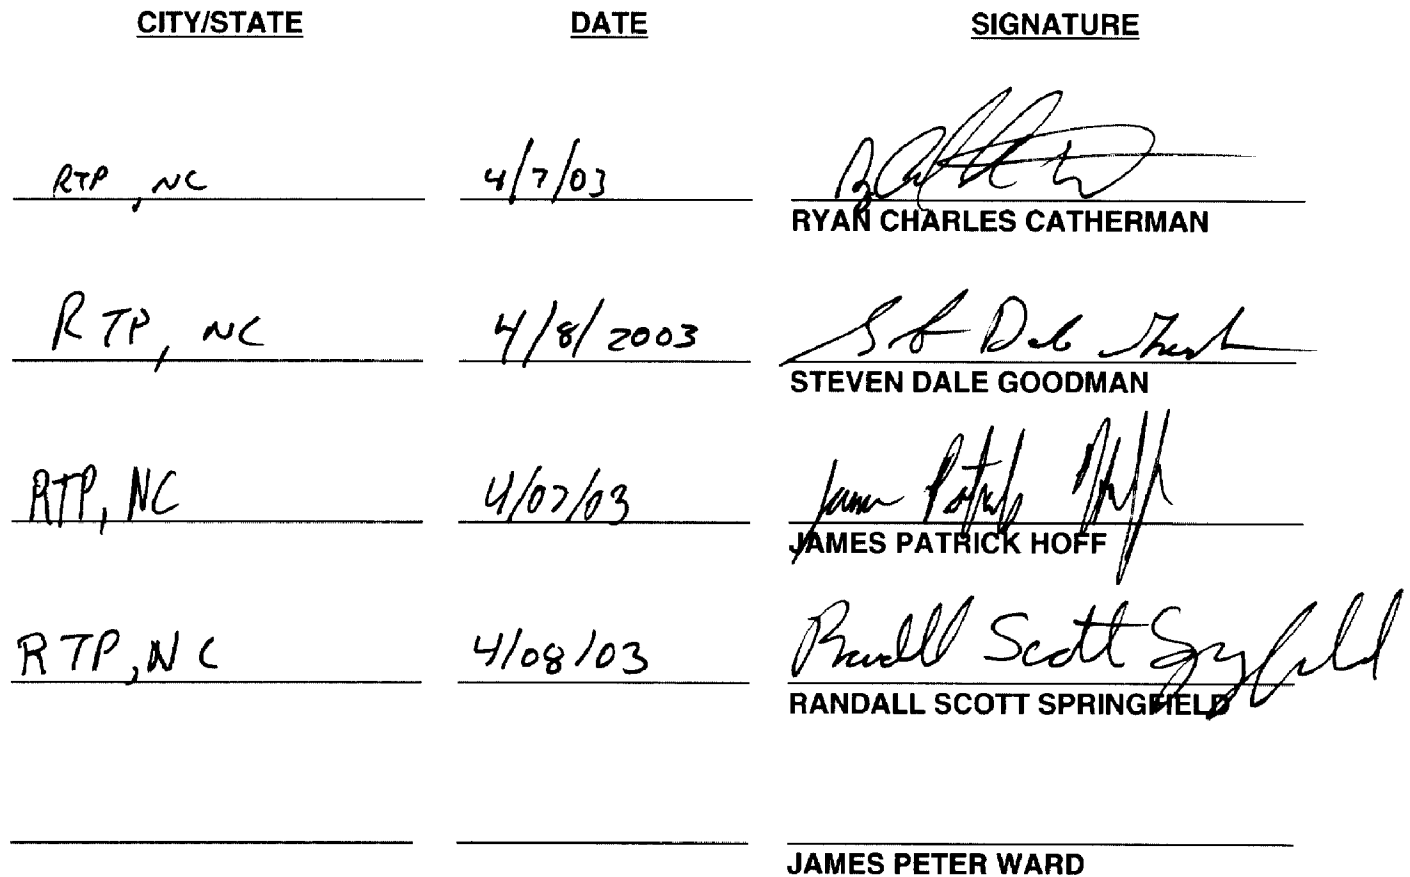 CITY/STATE DATE SIGNATURE
RTP, NC 4/7/03
RYAN CHARLES CATHERMAN
RTP, NC 4/8/2003
STEVEN DALE GOODMAN
RTP, NC 4/07/03 James Patrick Hoff
JAMES PATRICK HOFF
RTP, NC 4/08/03 Randall Scott Springfield
RANDALL SCOTT SPRINGFIELD
JAMES PETER WARD